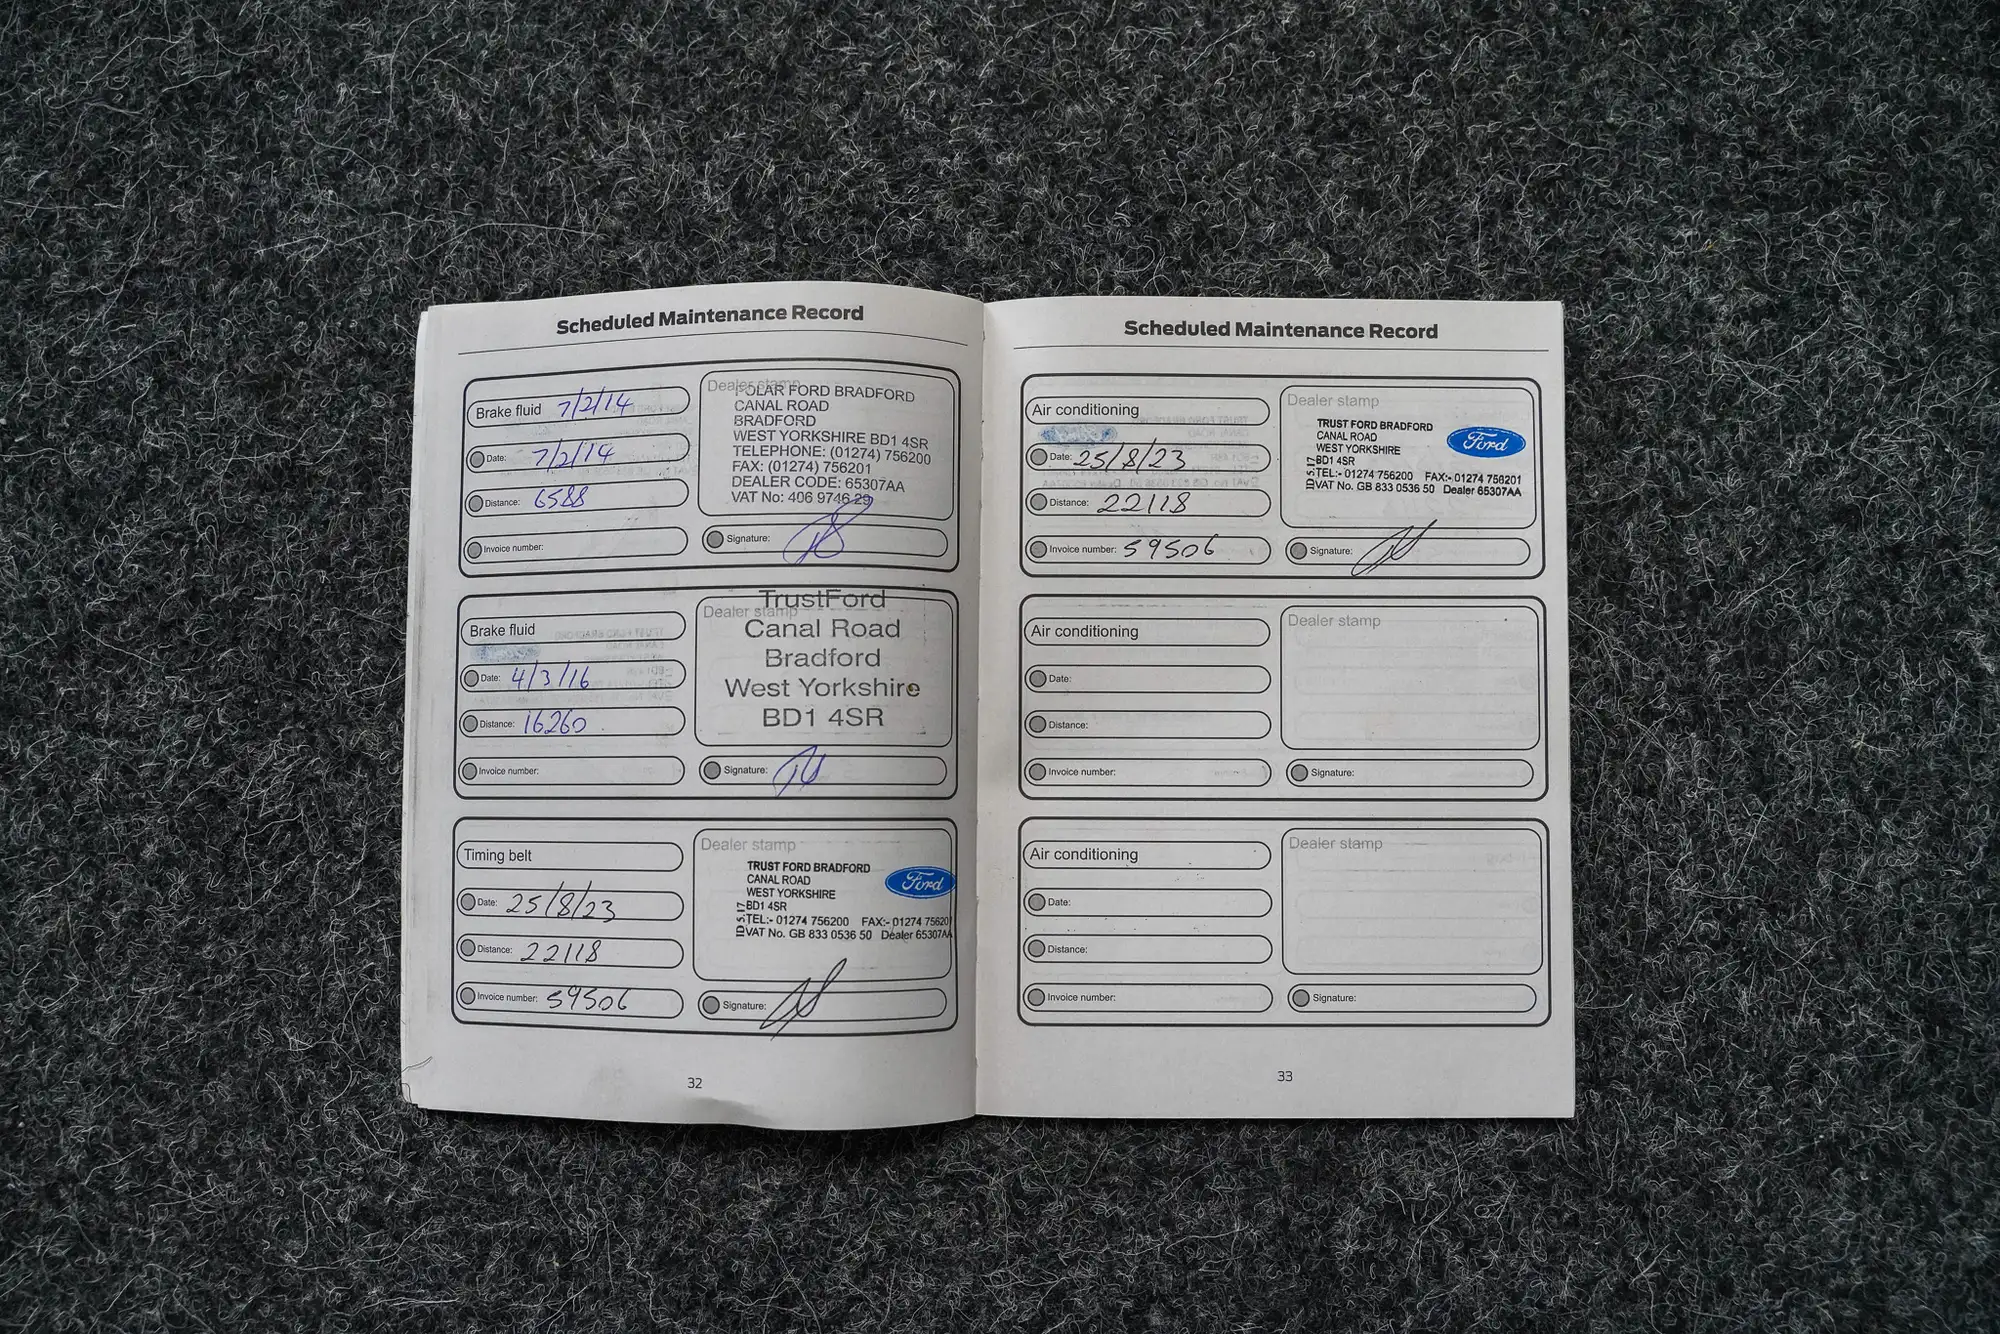 Scheduled Maintenance Record
Brake fluid 7/2/14
Date: 7/2/14
Distance: 6588
Invoice number:
Dealer stamp
POLAR FORD BRADFORD
CANAL ROAD
BRADFORD
WEST YORKSHIRE BD1 4SR
TELEPHONE: (01274) 756200
FAX: (01274) 756201
DEALER CODE: 65307AA
VAT No: 406 9746 29
Signature:
Brake fluid
Date: 4/3/16
Distance: 16260
Invoice number:
Dealer stamp
TrustFord
Canal Road
Bradford
West Yorkshire
BD1 4SR
Signature:
Timing belt
Date: 25/8/23
Distance: 22118
Invoice number: 59506
Dealer stamp
TRUST FORD BRADFORD
CANAL ROAD
WEST YORKSHIRE
BD1 4SR
TEL:- 01274 756200 FAX:- 01274 75620
VAT No. GB 833 0536 50 Dealer 65307AA
ID 5.17
Ford
Signature:
32
Scheduled Maintenance Record
Air conditioning
Date: 25/8/23
Distance: 22118
Invoice number: 59506
Dealer stamp
TRUST FORD BRADFORD
CANAL ROAD
WEST YORKSHIRE
BD1 4SR
TEL:- 01274 756200 FAX:- 01274 756201
VAT No. GB 833 0536 50 Dealer 65307AA
ID 5.17
Ford
Signature:
Air conditioning
Date:
Distance:
Invoice number:
Dealer stamp
Signature:
Air conditioning
Date:
Distance:
Invoice number:
Dealer stamp
Signature:
33